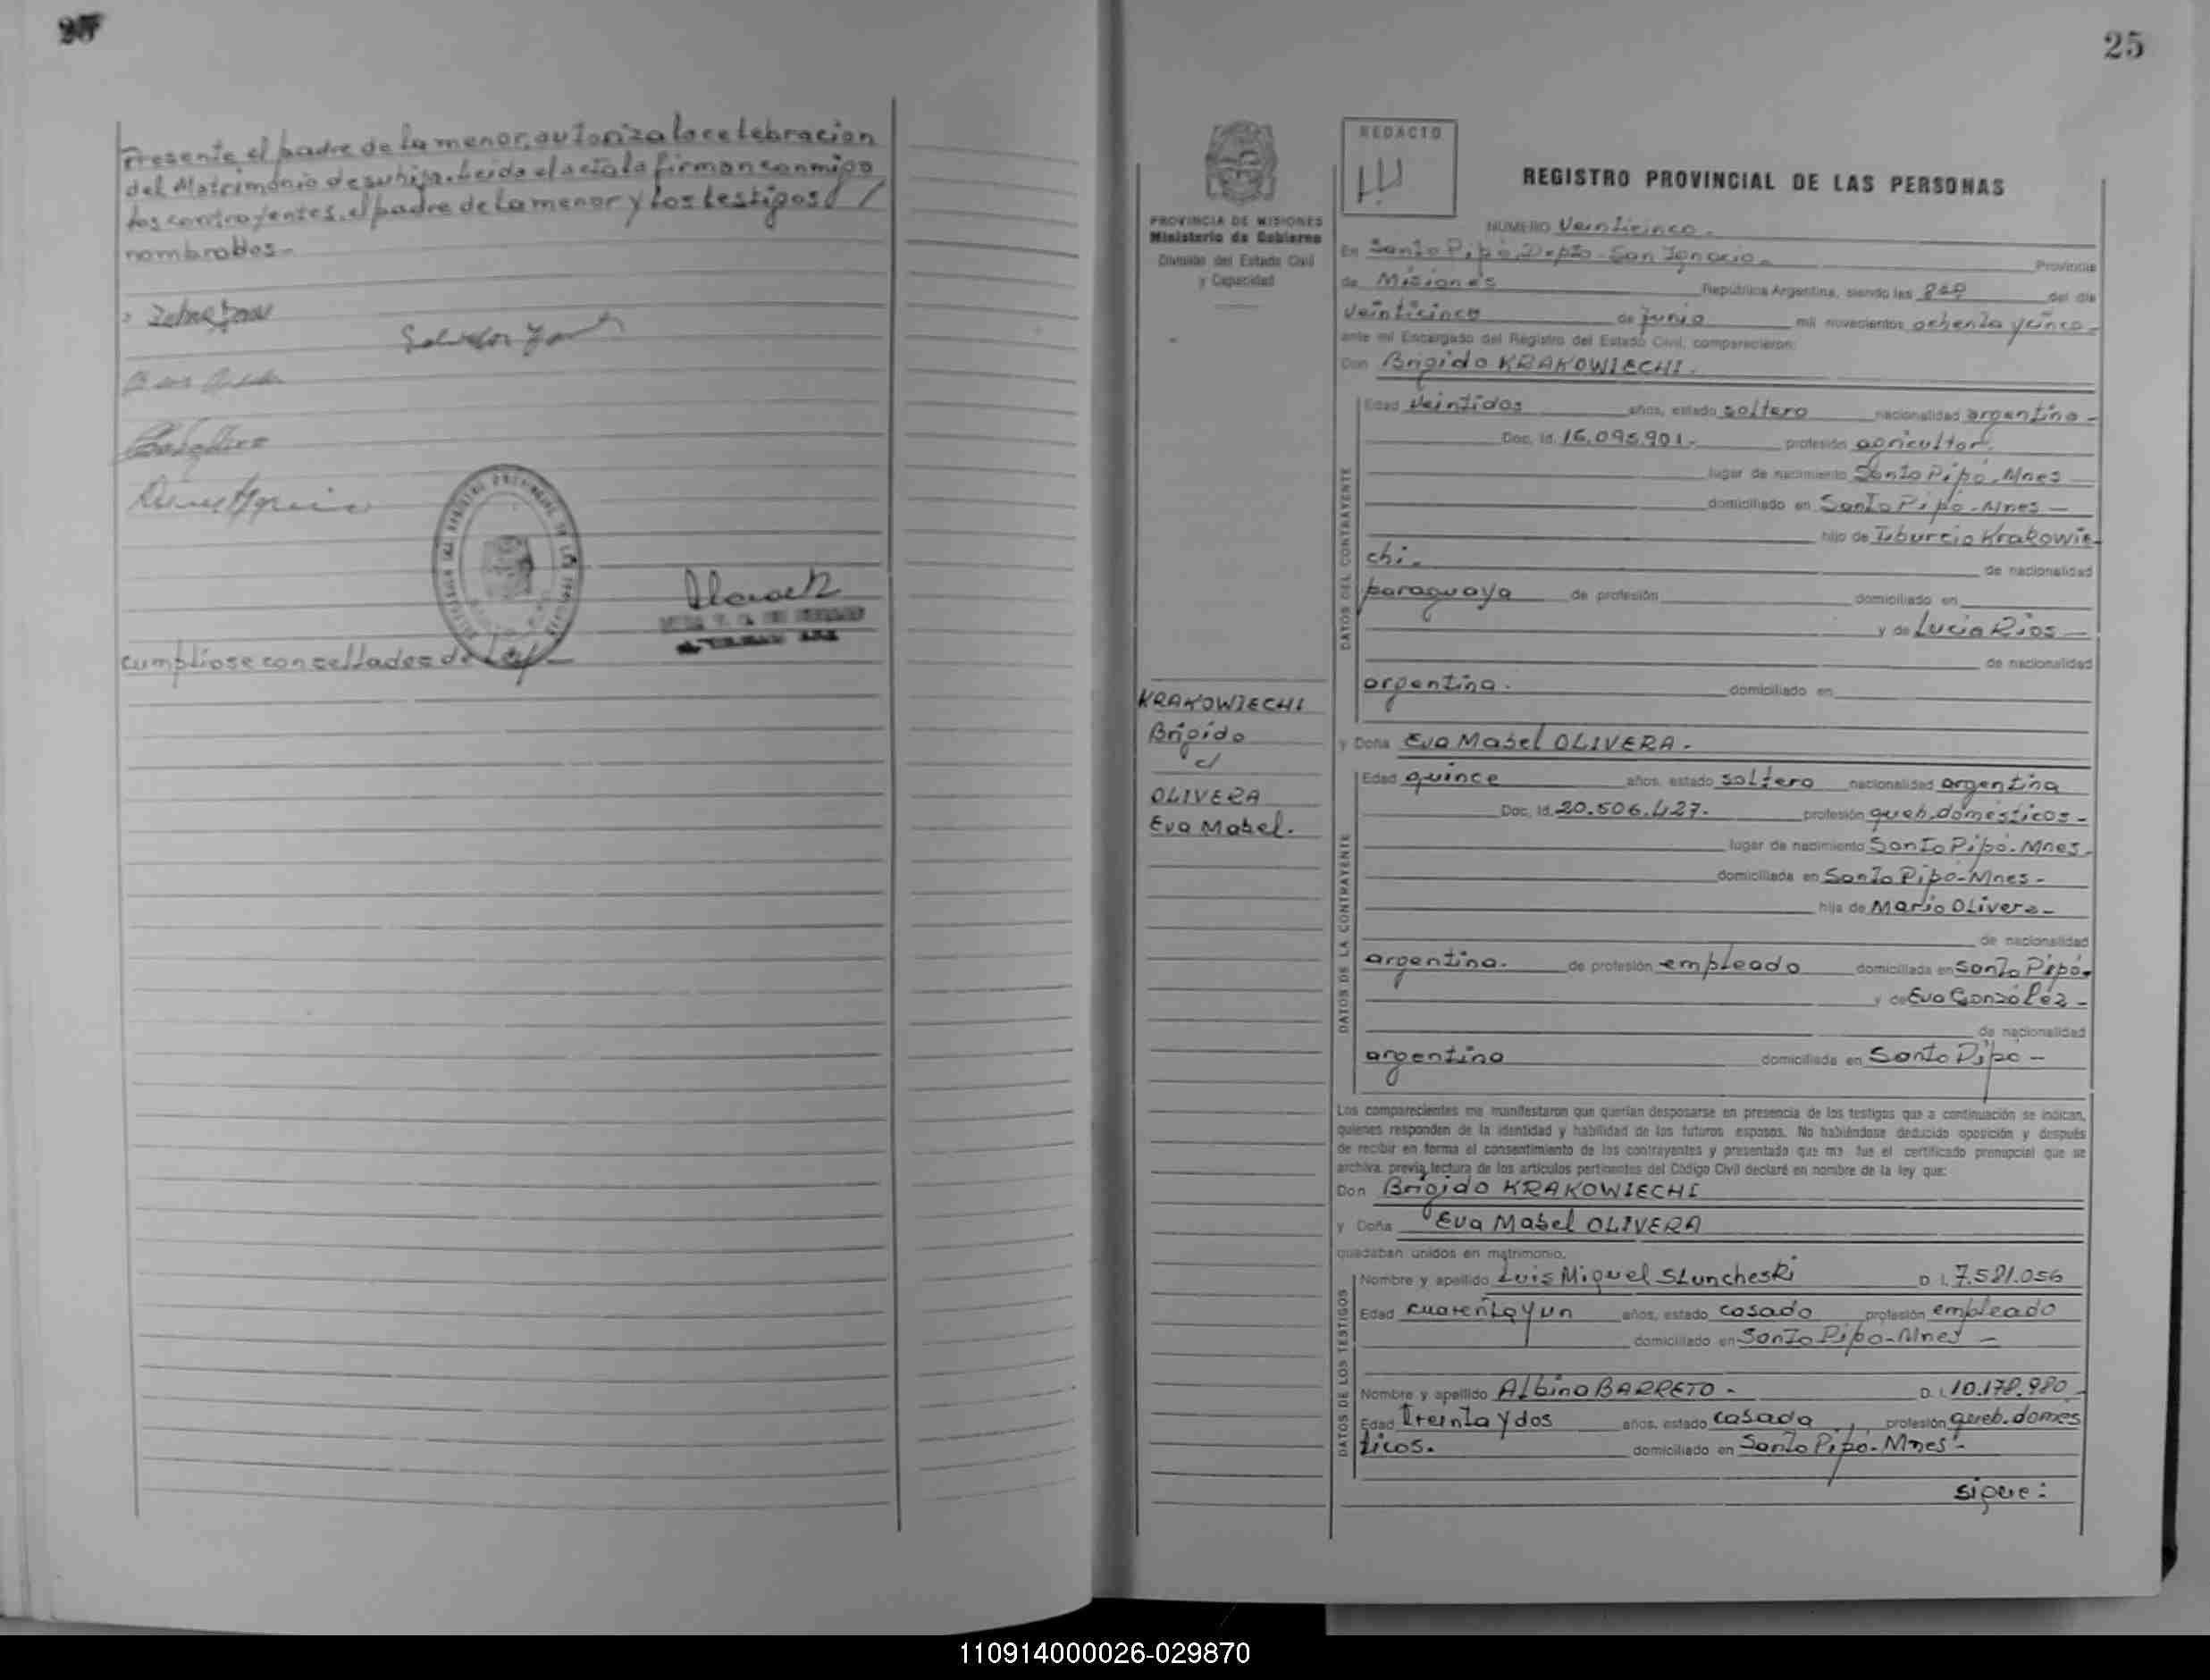 Presente el padre de la menor, autoriza la celebracion
del Matrimonio de su hija. Leida el acta la firman conmigo
los contrayentes, el padre de la menor y los testigos /
nombrados.-
cumpliose con sellados de Ley -
25
PROVINCIA DE MISIONES
Ministerio de Gobierno
División del Estado Civil
y Capacidad
KRAKOWIECHI
Brigido
c/
OLIVERA
Eva Mabel.
REDACTO
REGISTRO PROVINCIAL DE LAS PERSONAS
NUMERO Veinticinco -
En Santo Pipó, Depto. San Ignacio - Provincia
de Misiones República Argentina, siendo las del día
veinticinco de junio mil novecientos ochenta y cinco -
ante mi Encargado del Registro del Estado Civil, comparecieron:
Don Brigido KRAKOWIECHI.
DATOS DEL CONTRAYENTE
Edad Veintidos años, estado soltero nacionalidad argentina -
Doc. Id. 16.095.901.- profesión agricultor.
lugar de nacimiento Santo Pipó, Mnes
domiciliado en Santo Pipó - Mnes -
hijo de Tiburcio Krakowie-
chi. de nacionalidad
paraguaya de profesión domiciliado en
y de Lucia Rios -
de nacionalidad
argentina. domiciliado en
y Doña Eva Mabel OLIVERA.
DATOS DE LA CONTRAYENTE
Edad quince años, estado soltera nacionalidad argentina
Doc. Id. 20.506.427. profesión queh.domésticos -
lugar de nacimiento Santo Pipó. Mnes.
domiciliada en Santo Pipó - Mnes -
hija de Mario Olivera -
de nacionalidad
argentina. de profesión empleado domiciliada en Santo Pipó.
y de Eva González -
de nacionalidad
argentina domiciliada en Santo Pipó -
Los comparecientes me manifestaron que querían desposarse en presencia de los testigos que a continuación se indican,
quienes responden de la identidad y habilidad de los futuros esposos. No habiéndose deducido oposición y después
de recibir en forma el consentimiento de los contrayentes y presentado que me fue el certificado prenupcial que se
archiva, previa lectura de los artículos pertinentes del Código Civil declaré en nombre de la ley que:
Don Brigido KRAKOWIECHI
y Doña Eva Mabel OLIVERA
quedaban unidos en matrimonio.
DATOS DE LOS TESTIGOS
Nombre y apellido Luis Miguel Sluncheski D. I. 7.581.056
Edad cuarenta y un años, estado casado profesión empleado
domiciliado en Santo Pipó - Mnes -
Nombre y apellido Albino BARRETO - D. I. 10.178.980
Edad treinta y dos años, estado casada, profesión queh. domés
ticos. domiciliado en Santo Pipó - Mnes -
sigue:
110914000026-029870